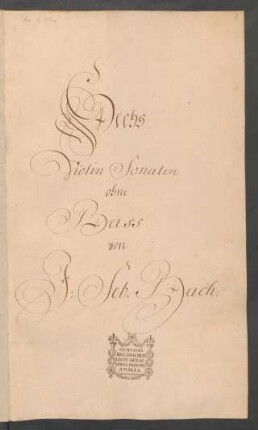 Sechs
Violin Sonaten
ohne
Bass
von
J. Seb. Bach.